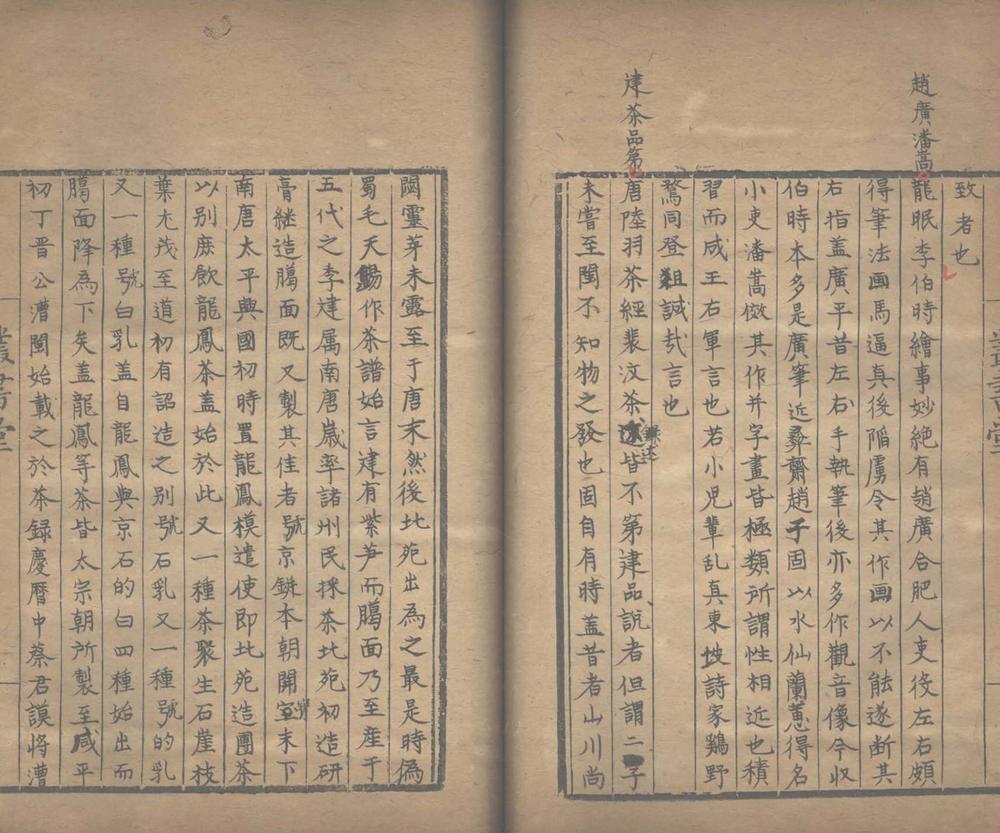 致者也
趙廣潘嵩
龍眠李伯時繪事妙絶有趙廣合肥人吏役左右頗
得筆法画馬逼真後陷虜令其作画以不能遂断其
右指盖廣平昔左右手執筆後亦多作觀音像今収
伯時本多是廣筆近彞齋趙子固以水仙蘭蕙得名
小吏潘嵩倣其作并字畫皆極類所謂性相近也積
習而成王右軍言也若小児輩乱真東坡詩家鷄野
鶩同登俎誠哉言也
建茶品第
唐陸羽茶經裴汶茶述皆不第建品説者但謂二子
未嘗至閩不知物之發也固自有時盖昔者山川尚
閟靈芽未露至于唐末然後北苑出為之最是時偽
蜀毛天錫作茶譜始言建有紫笋而臈面乃至産于
五代之李建属南唐嵗率諸州民採茶北苑初造研
膏継造臈面既又製其佳者號京鋌本朝開寳末下
南唐太平興國初時置龍鳳模遣使即北苑造團茶
以别庶飲龍鳳茶盖始於此又一種茶叢生石崖枝
葉尤茂至道初有詔造之别號石乳又一種號的乳
又一種號白乳盖自龍鳳與京石的白四種始出而
臈面降為下矣盖龍鳳等茶皆太宗朝所製至咸平
初丁晋公漕閩始載之於茶録慶曆中蔡君謨将漕
叢書堂